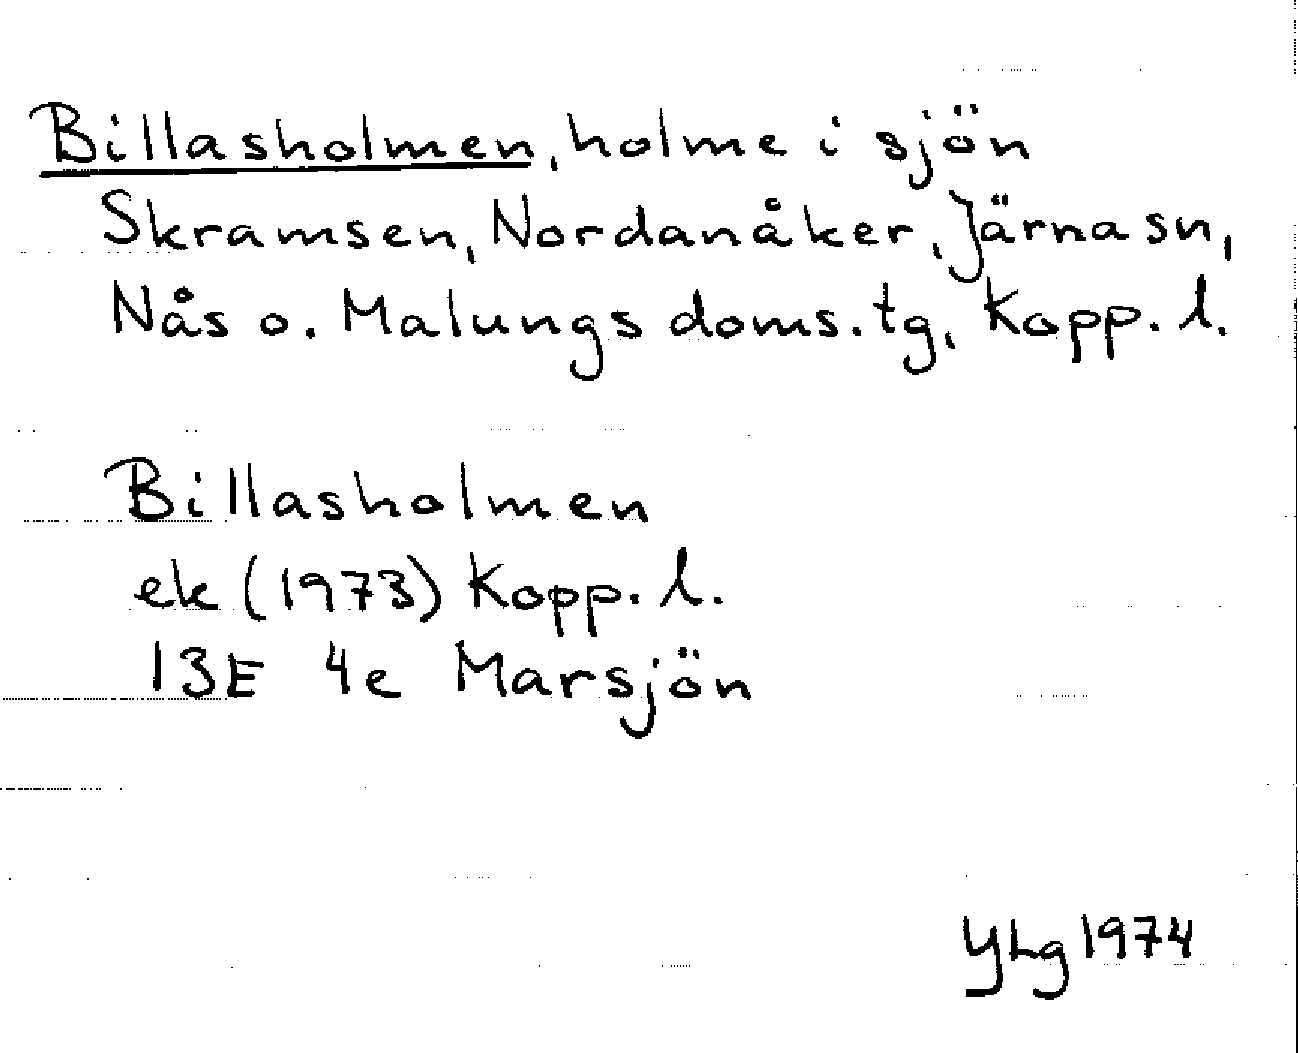 Billasholmen, holme i sjön
Skramsen, Nordanåker, Järna sn,
Nås o. Malungs doms.tg, Kopp. l.
Billasholmen
ek (1973) Kopp. l.
13E 4e Marsjön
YLg 1974